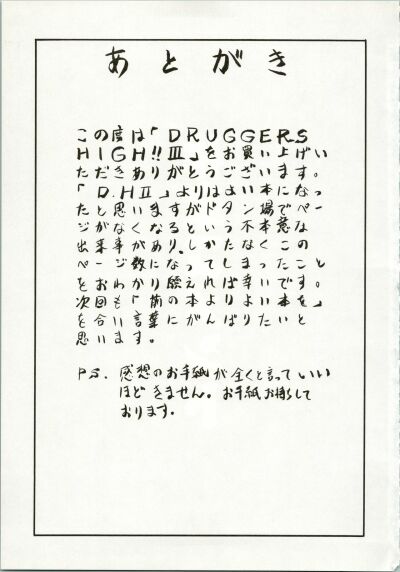 あとがき
この度は「DRUGGERS
HIGH!!Ⅲ」をお買い上げい
ただきありがとうございます。
「D.HⅡ」よりはよい本になっ
たと思いますがドタン場でペー
ジがなくなるという不本意な
出来事があり、しかたなくこの
ページ数になってしまったこと
をおわかり願えれば幸いです。
次回も「前の本よりよい本を」
を合い言葉にがんばりたいと
思います。
PS. 感想のお手紙が全くと言っていい
ほどきません。お手紙お待ちして
おります。